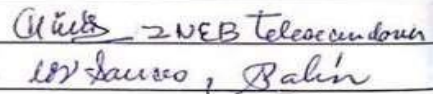 INEB Telesecundaria
los Sauces, Balín